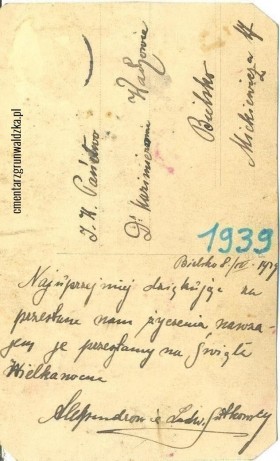 cmentarzgrunwaldzka.pl
J. W. Państwo
Dr. Kazimierowie
Bielsko
Mickiewicza
1939
Bielsko 8/IV 1939
Najuprzejmiej dziękując za
przesłane nam życzenia nawza-
jem je przesyłamy na Święta
Wielkanocne
Aleksandrowie